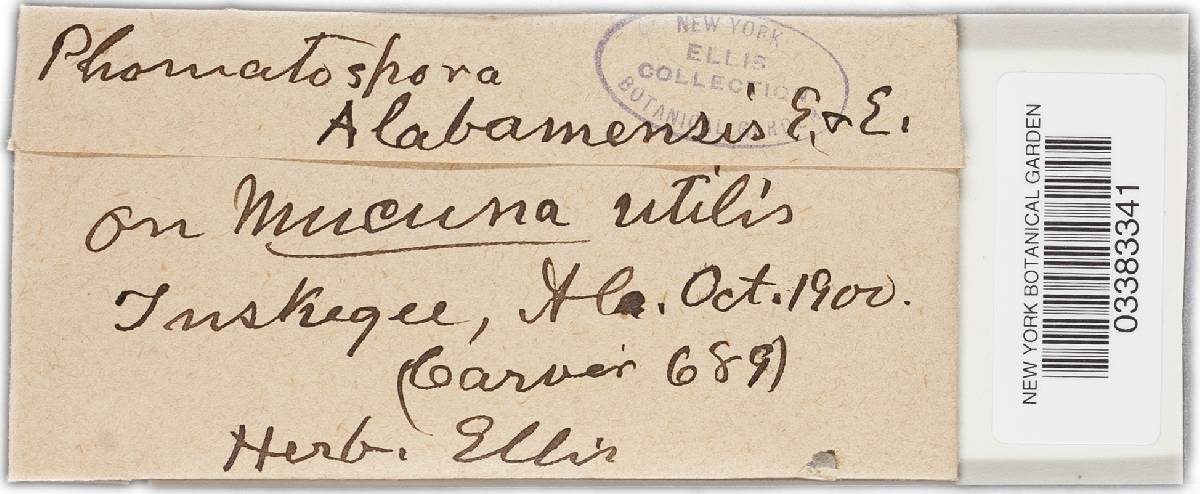 Phomatospora
Alabamensis E. & E.
on Mucuna utilis
Tuskegee, Ala. Oct. 1900.
(Carver 689)
Herb. Ellis
NEW YORK
ELLIS
COLLECTION
BOTANICAL GARDEN
NEW YORK BOTANICAL GARDEN
03383341